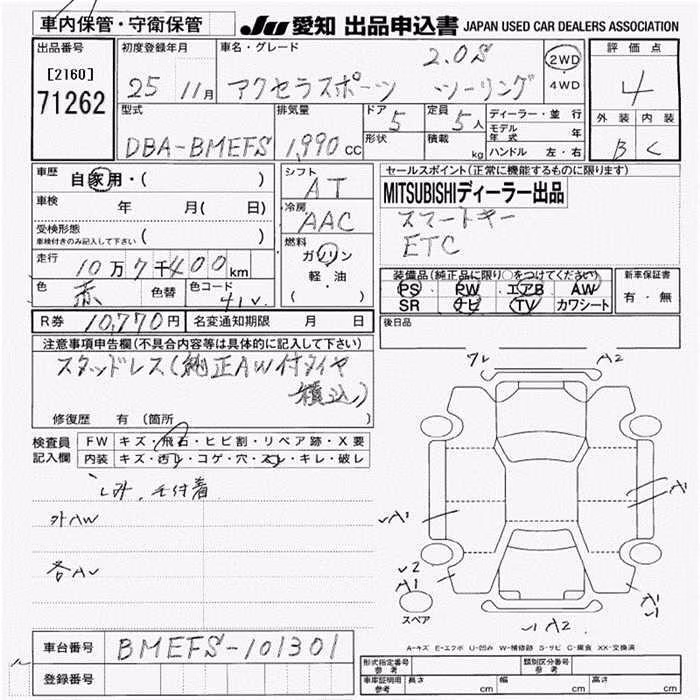 車内保管・守衛保管
JU 愛知 出品申込書 JAPAN USED CAR DEALERS ASSOCIATION
出品番号
[2160]
71262
初度登録年月
25 11月
車名・グレード
2.0S
アクセラスポーツ ツーリング
2WD
・
4WD
評価点
4
外装 内装
B C
型式
DBA-BMEFS
排気量
1,990 CC
ドア 5
形状
定員 5人
積載 kg
ディーラー・並行
モデル年式 年
ハンドル 左・右
車歴
自家用・( )
車検
年 月( 日)
受検形態
車検付きのみ記入して下さい ( )
走行
10万7千400km
色
赤
色替
色コード
41V
シフト
AT
冷房
AAC
燃料
ガソリン
軽・油
( )
セールスポイント(正常に機能するものに限ります)
MITSUBISHIディーラー出品
スマートキー
ETC
装備品(純正品に限り○をつけてください)
PS PW エアB AW
SR ナビ TV カワシート
新車保証書
有・無
R券 10,770円 名変通知期限 月 日
後日品
注意事項申告欄(不具合内容等は具体的に記入して下さい)
スタッドレス(純正AW付タイヤ
積込)
修復歴 有(箇所 )
検査員
記入欄
FW キズ・飛石・ヒビ割・リペア跡・X要
内装 キズ・汚レ・コゲ・穴・スレ・キレ・破レ
シミ、毛付着
外AW
各AV
ワレ A2
A1
A1
A1
A1
A2
スペア
A-キズ E-エクボ U-凹み W-補修跡 S-サビ C-腐食 XX-交換済
車台番号 BMEFS-101301
登録番号
形式指定番号
参考
類別区分番号
参考
車庫証明用
参考
長さ cm 幅 cm 高さ cm